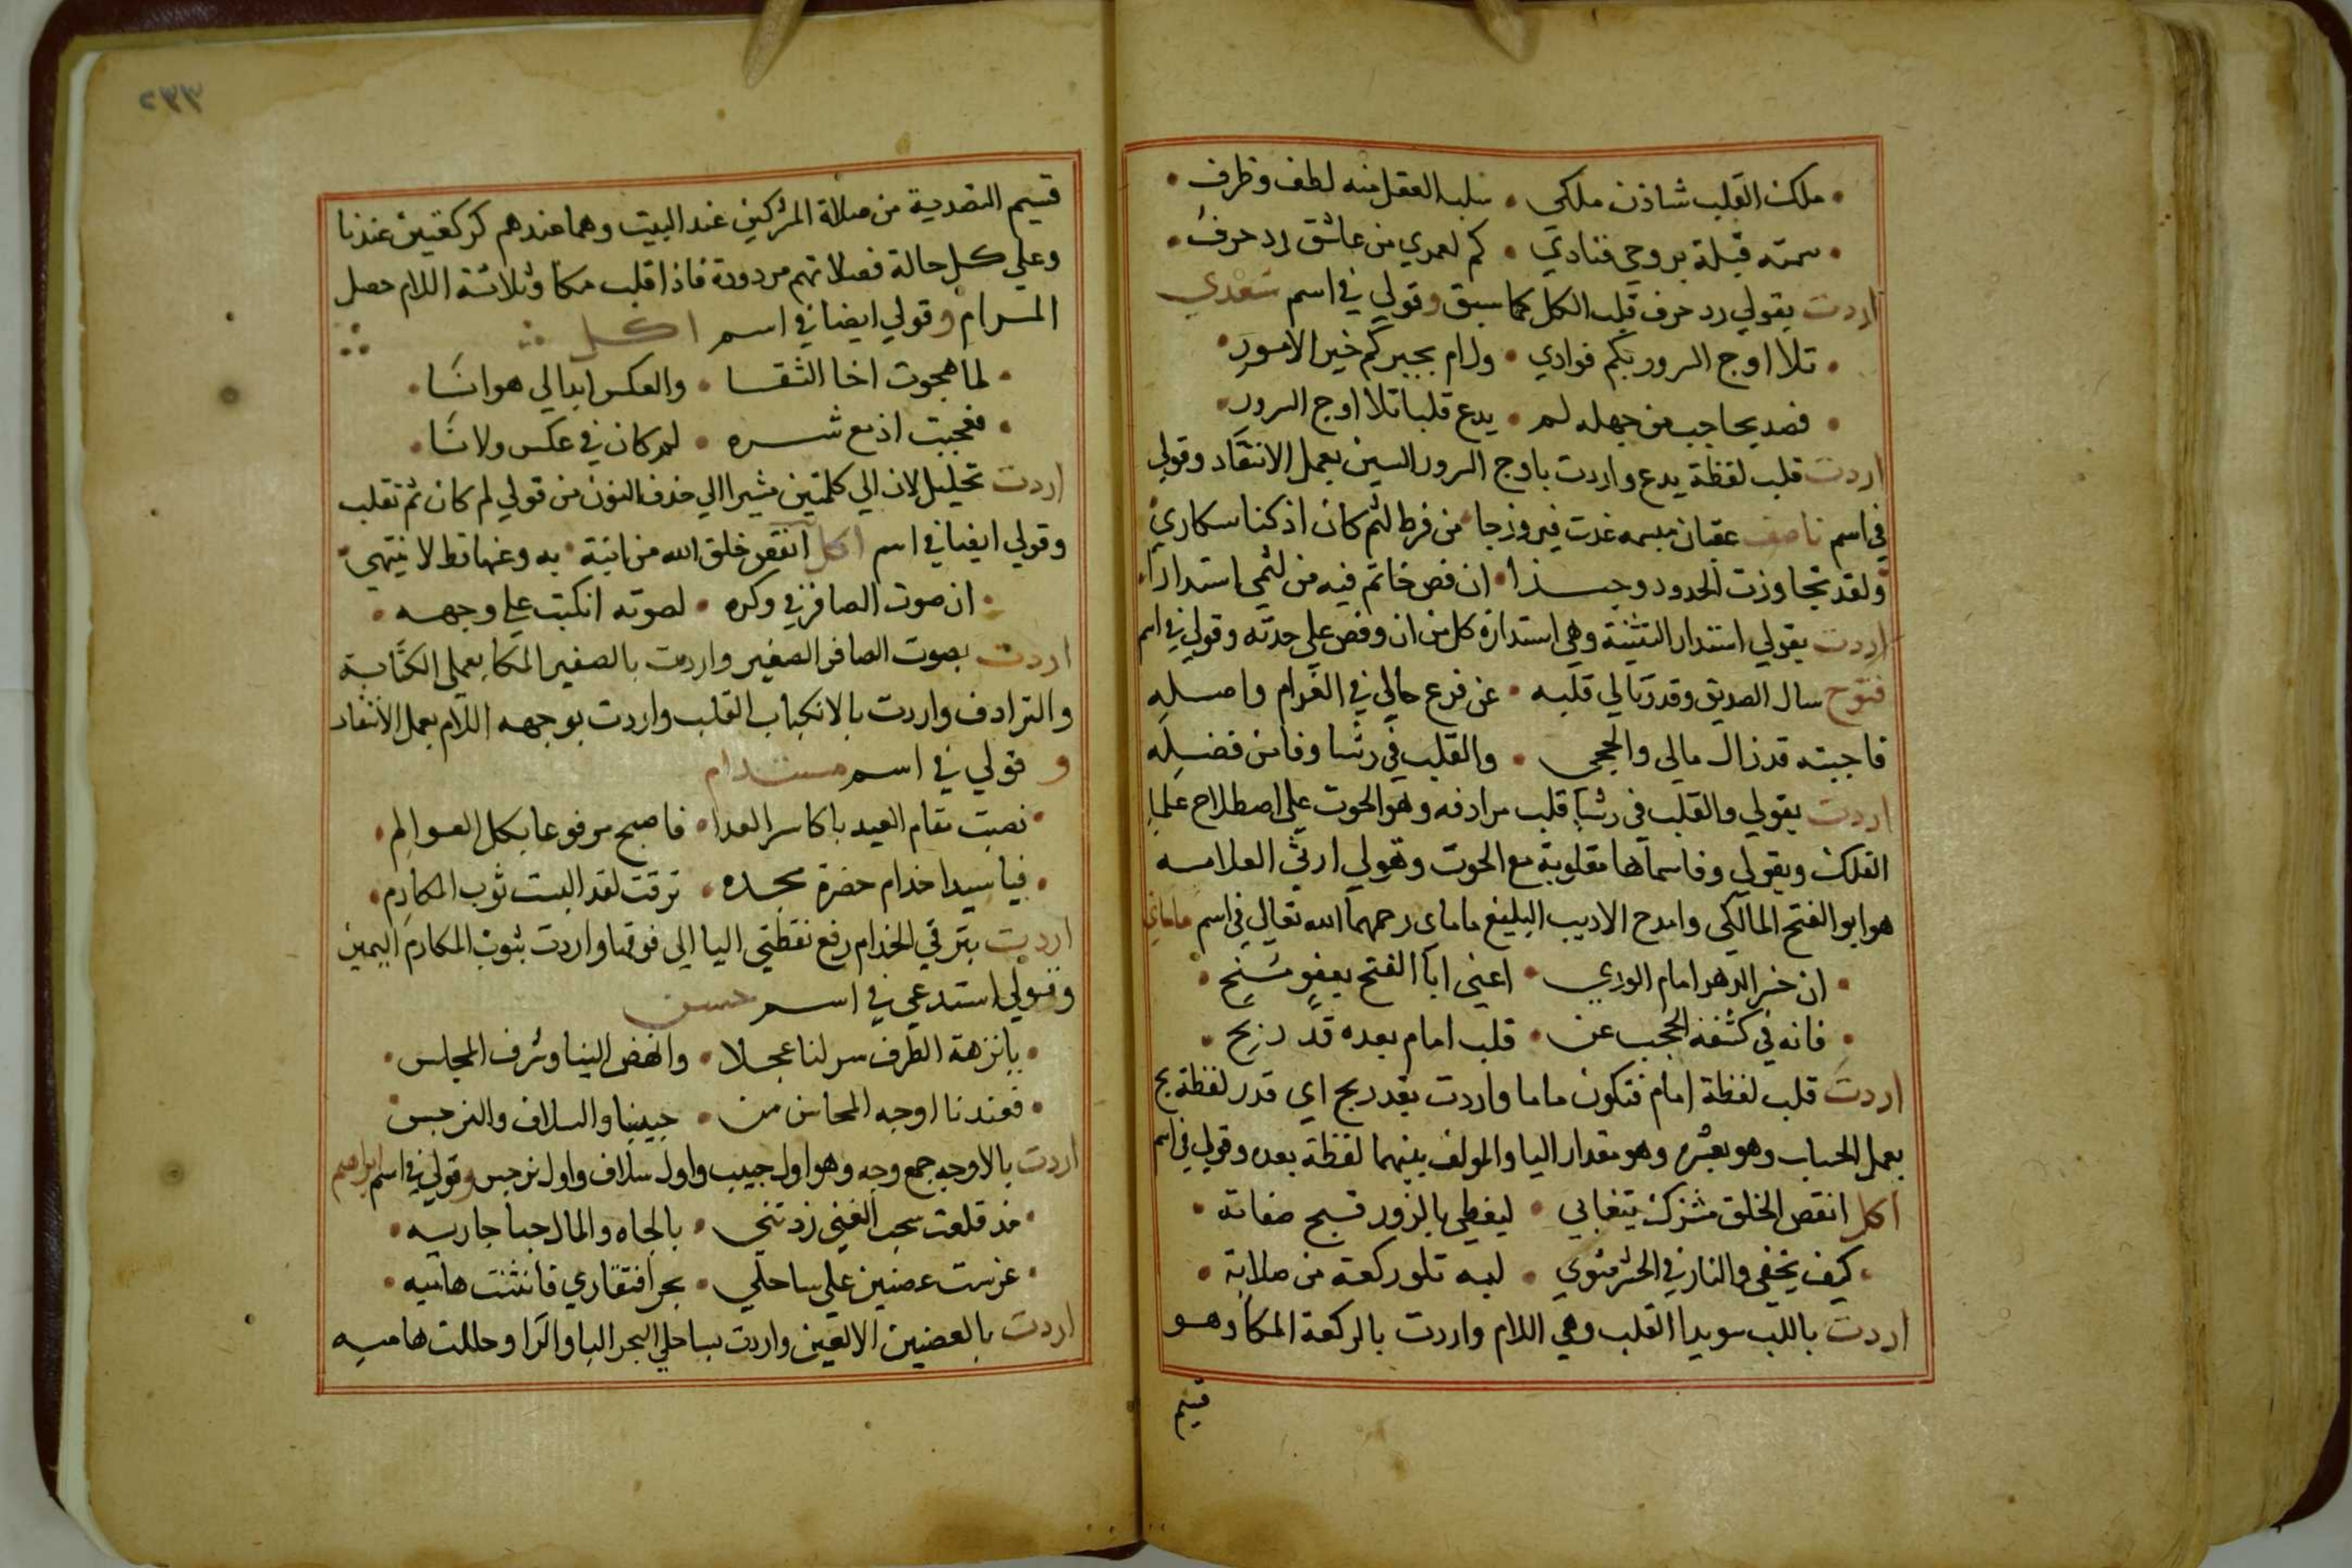 ملك القلب شاذن ملكي • سلب العقل منه لطف وظرف
سمته قبلة بروحي فنادي • كم لعمري من عاشق رد حرف
اردت بقولي رد حرف قلب الكل كما سبق وقولي في اسم سعدي
تلا اوج السرور بكم فوادي • ورام بجبركم خير الامور
فصد بحاجب من جهله لم • يدع قلبا تلا اوج السرور
اردت قلب لفظة يدع واردت باوج السرور السين بعمل الانتقاد وقولي
في اسم ناصف عقبان مبسمه غدت فيروزجا من فرط لثم كان اذ كنا سكاري
ولقد تجاوزت الحدود وحبذا • ان فص خاتم فيه من لثمي استدارا
اردت بقولي استدارا التثنية وهي استدارة كل من ان وفص علي حدته وقولي في اسم
فتوح سال الصديق وقد رثا لي قلبه • عن فرع حالي في الغرام واصله
فاجبته قد زال مالي والحجي • والقلب في رشا وفا من فضله
اردت بقولي والقلب في رشا قلب مرادفه وهو الحوت علي اصطلاح علما
الفلك وبقولي وفا سماها مقلوبة مع الحوت وقولي ارثي العلامه
هو ابو الفتح المالكي وامدح الاديب البليغ ماماي رحمهما الله تعالي في اسم ماماي
ان خير الدهر امام الوري • اعني ابا الفتح بعفو منح
فانه في كشفه الحجب عن • قلب امام بعده قد ربح
اردت قلب لفظة امام فتكون ماما واردت بقد ربح اي قدر لفظة بح
بعمل الحساب وهو بعشره وهو مقدار اليا والمولف بينهما لفظة بعده وقولي في اسم
اكل انقص الخلق مشرك يتغابي • ليغطي بالزور قبح صفاته
كيف يخفي والنار في الحشر مثوي • لبه تلو ركعة من صلاته
اردت باللب سويدا القلب وهي اللام واردت بالركعة المكا وهو
قسيم
٢٣٣
قسيم التصدية من صلاة المشركين عند البيت وهما عندهم كركعتين عندنا
وعلي كل حالة فصلاتهم مردودة فاذا قلب مكا وثلاثة اللام حصل
المرام وقولي ايضا في اسم اكل
لما هجوت اخا الثقا • والعكس ابدا لي هوانا
فعجبت اذ مع شره • لم كان في عكس ولانا
اردت تحليل لان الي كلمتين مشيرا الي حذف النون من قولي لم كان ثم تقلب
وقولي ايضا في اسم اكل انقص خلق الله من انبة • به وعنها قط لا ينتهي
ان صوت الصافر في وكره • لصوته انكبت علي وجهه
اردت بصوت الصافر الصفير واردت بالصفير المكا بعملي الكناية
والترادف واردت بالانكباب القلب واردت بوجهه اللام بعمل الانتقاد
و قولي في اسم مستدام
نصبت مقام العيد يا كاسر العدا • فاصبح مرفوعا بكل العوالم
فيا سيدا خدام حضرة مجده • ترقت لقد البست ثوب المكارم
اردت بترقي الخدام رفع نقطتي اليا الي فوقها واردت بثوب المكارم اليمين
وقولي استدعي في اسم حسن
يا نزهة الطرف سر لنا عجلا • وانهض الينا وشرف المجلس
فعندنا اوجه المحاسن من • حبيبنا والسلاف والنرجس
اردت بالاوجه جمع وجه وهو اول حبيب واول سلاف واول نرجس وقولي في اسم ابراهيم
مذ قلعت سحب الغني زدتني • بالجاه والمال حبا جاريه
غرست غصنين علي ساحلي • بحر افتقاري فانثنت هاميه
اردت بالغصنين الالفين واردت بساحلي البحر البا والرا وحللت هاميه